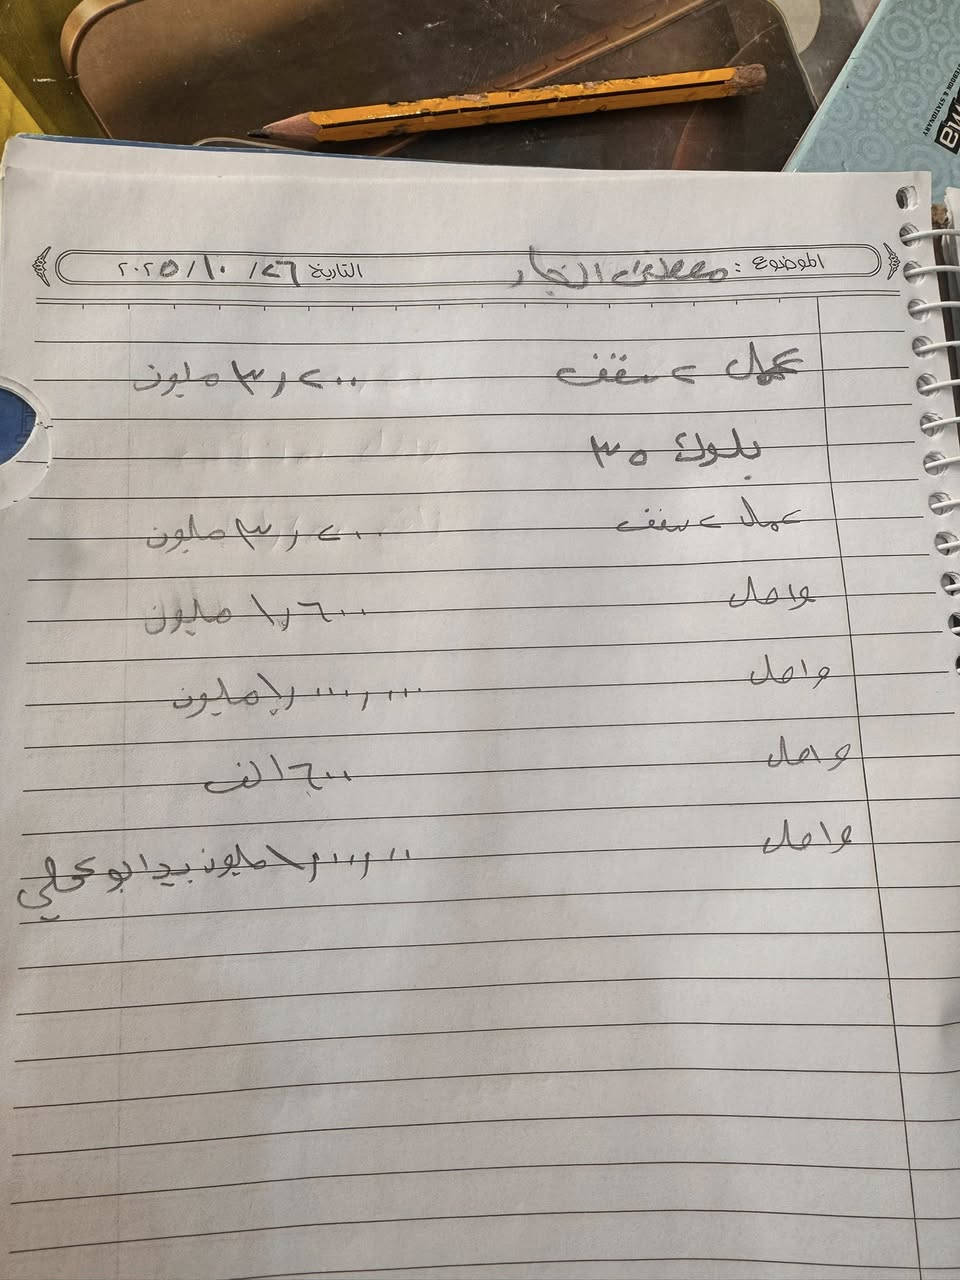 NOTEBOOK & STATIONARY
الموضوع : مصطفى النجار التاريخ ٢٦ / ١٠ / ٢٠٢٥
عمل ٢ سقف ٣,٢٠٠ مليون
بلوك ٣٥
عمل ٢ سقف ٣,٢٠٠ مليون
واصل ١,٦٠٠ مليون
واصل ١,٠٠٠,٠٠٠ مليون
واصل ٦٠٠ الف
واصل ١,٠٠٠,٠٠ مليون بيد ابو علي